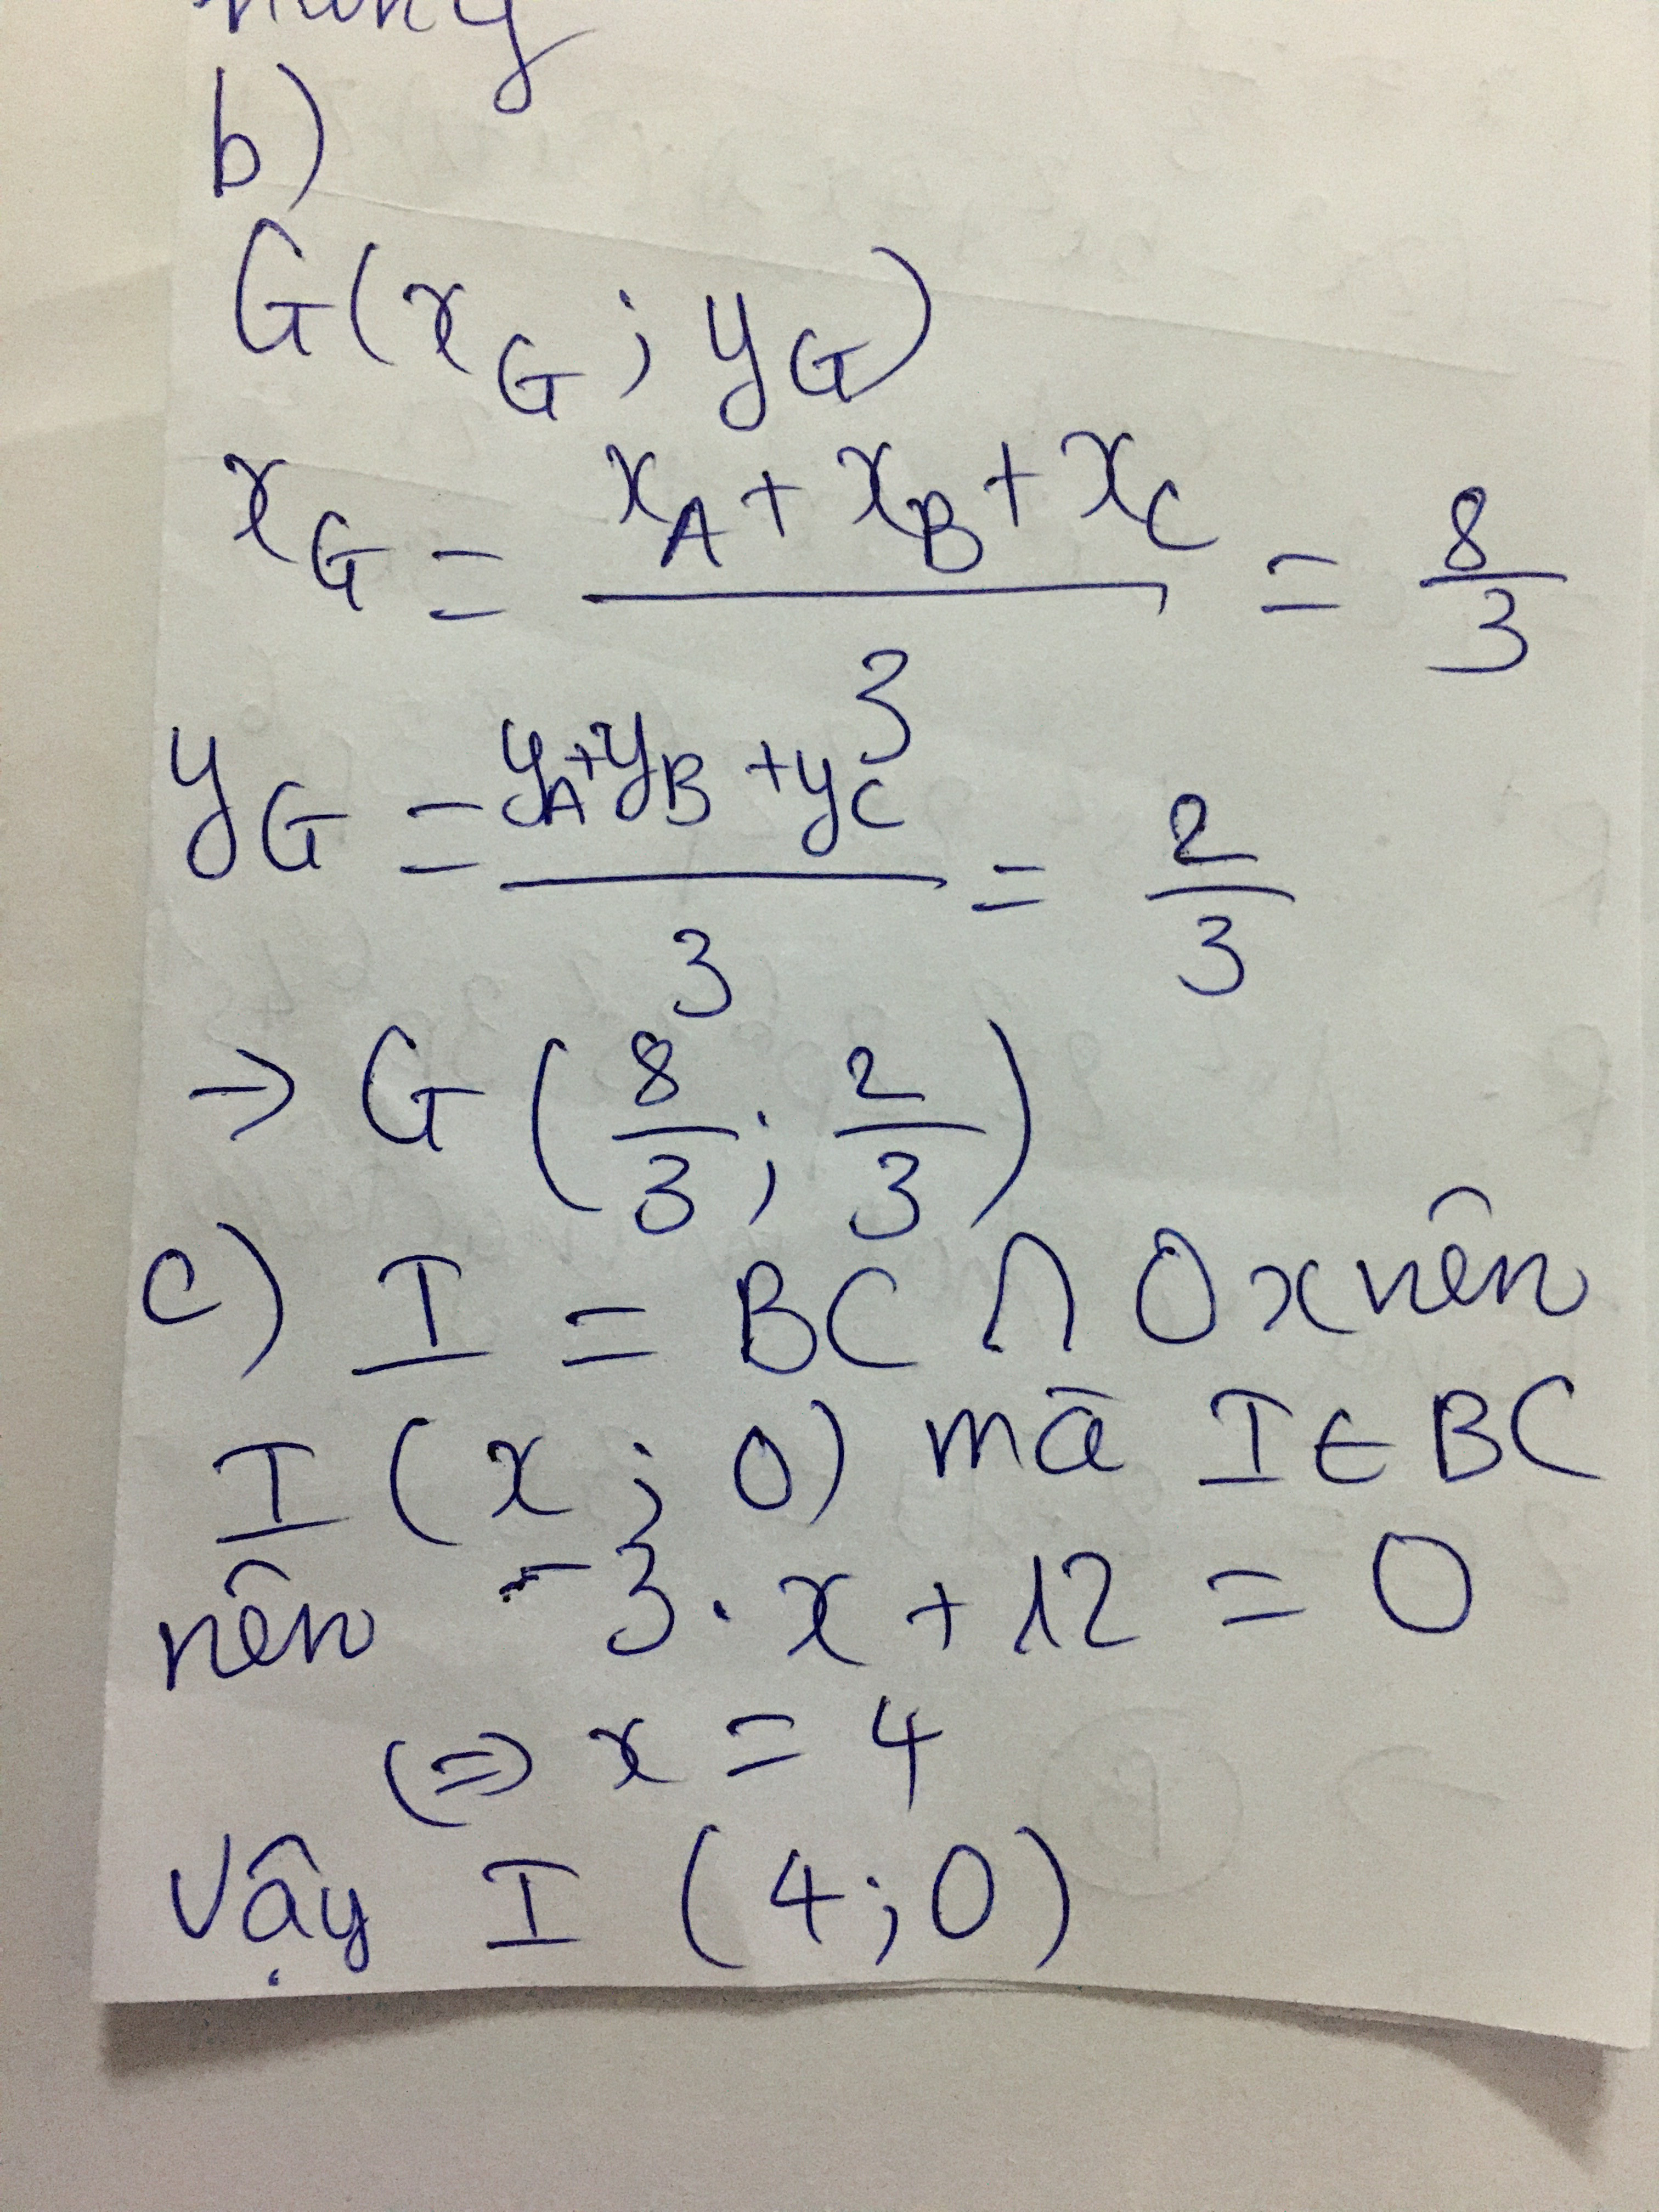 b)
G(x_G ; y_G)
x_G = (x_A + x_B + x_C)/3 = 8/3
y_G = (y_A + y_B + y_C)/3 = 2/3
→ G (8/3 ; 2/3)
c) I = BC ∩ Ox nên
I (x ; 0) mà I ∈ BC
nên -3. x + 12 = 0
(=> x = 4
Vậy I (4 ; 0)